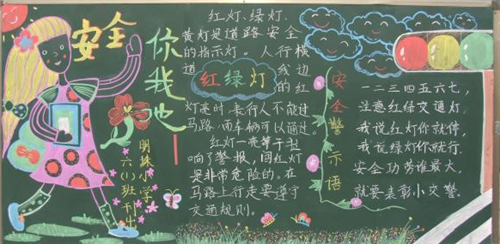 安全
你我他
明珠小学
六(1)班刊
红灯、绿灯、
黄灯是道路安全
的指示灯。人行横
道
红绿灯
我边
的红
灯亮时,表行人不能过
马路,而车辆可以通过。
红灯一亮等于拉
响了警报,闯红灯
是非常危险的,在
马路上行走要遵守
交通规则。
安全警示语
一二三四五六七,
注意红绿交通灯,
我说红灯你就停,
我说绿灯你就行,
安全功劳谁最大,
就要表彰小交警。